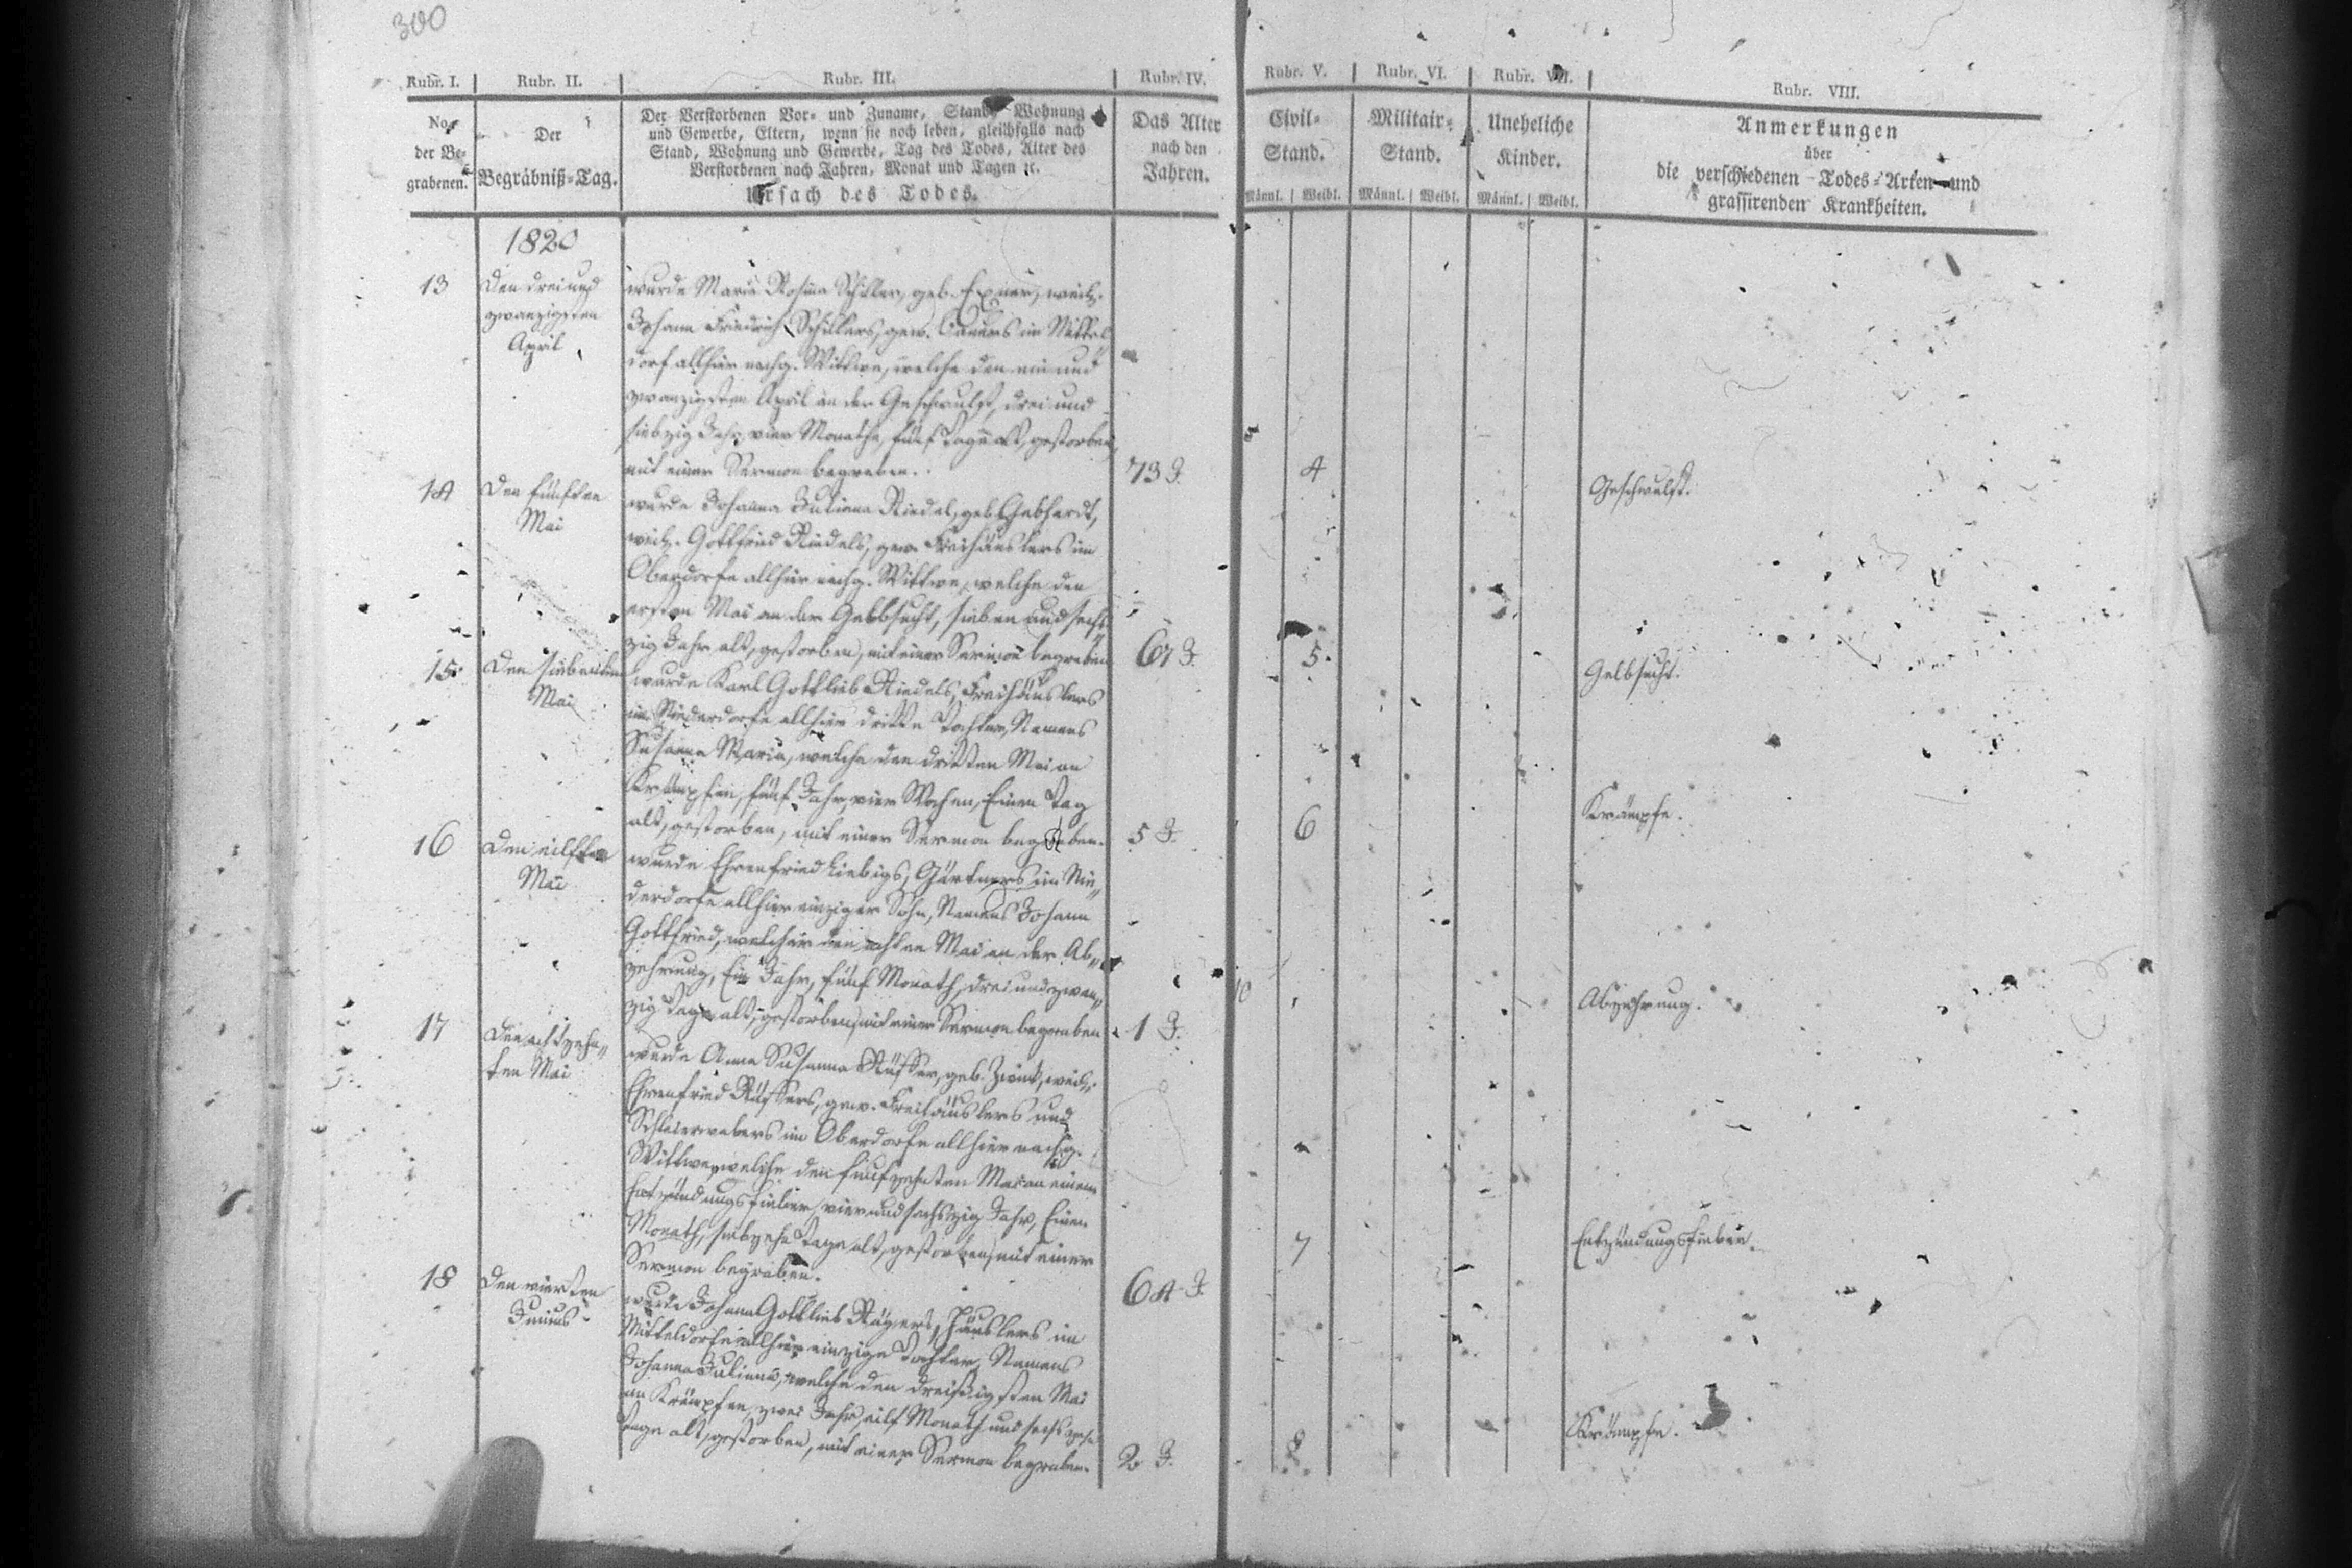 300
Rubr. I. Rubr. II. Rubr. III. Rubr. IV. Rubr. V. Rubr. VI. Rubr. VII. Rubr. VIII.
No.
der Be-
grabenen.
Der
Begräbniß-Tag.
Der Verstorbenen Vor- und Zuname, Stand, Wohnung
und Gewerbe, Eltern, wenn sie noch leben, gleichfalls nach
Stand, Wohnung und Gewerbe, Tag des Todes, Alter des
Verstorbenen nach Jahren, Monat und Tagen ꝛc.
Ursach des Todes.
Das Alter
nach den
Jahren.
Civil-
Stand.
Männl. Weibl.
Militair-
Stand.
Männl. Weibl.
Uneheliche
Kinder.
Männl. Weibl.
Anmerkungen
über
die verschiedenen Todes-Arten und
grassirenden Krankheiten.
1820
13
Den drei und
zwanzigsten
April
wurde Maria Rosina Schiller, geb. Exner, weil.
Johann Friedrich Schillers, gew. Bauers im Mittel
dorf allhier nachg. Wittwe, welche den ein und
zwanzigsten April an der Geschwulst, drei und
siebzig Jahr, vier Monathe, fünf Tage alt, gestorben,
mit einer Sermon begraben.
73 J.
4
Geschwulst.
14
Den fünften
Mai
wurde Johanna Juliana Riedel, geb. Gebhardt,
weil. Gottfried Riedels, gew. Freihäuslers im
Oberdorfe allhier nachg. Wittwe, welche den
ersten Mai an der Gelbsucht, sieben und sech
zig Jahr alt, gestorben, mit einer Sermon begraben
67 J.
5.
Gelbsucht.
15.
Den siebenten
Mai
wurde Karl Gottlieb Riedels, Freihäuslers
im Niederdorfe allhier dritte Tochter, Namens
Susanna Maria, welche den dritten Mai an
Krämpfen, fünf Jahr, vier Wochen, Einen Tag
alt, gestorben, mit einer Sermon begraben.
5 J.
6
Krämpfe.
16
Den eilften
Mai
wurde Ehrenfried Liebigs, Gärtners im Nie„
derdorfe allhier einziger Sohn, Namens Johann
Gottfried, welcher den achten Mai an der Ab„
zehrung, Ein Jahr, fünf Monath, drei und zwan„
zig Tage alt, gestorben, mit einer Sermon begraben
1 J.
10
Abzehrung.
17
Den achtzehn„
ten Mai
wurde Anna Susanna geb. weil.
Ehrenfried gew. Freihäuslers und
Schleierwebers im Oberdorfe allhier nachg.
Wittwe, welche den fünfzehnten Mai an einem
Entzündungsfieber, vier und sechszig Jahr, Einen
Monath, siebzehn Tage alt, gestorben, mit einer
Sermon begraben.
64 J.
7
Entzündungsfieber.
18
Den vierten
Junius
wurde Johann Gottlieb Häuslers im
Mitteldorfe allhier einzige Tochter, Namens
Johanna Juliana, welche den dreißigsten Mai
an Krämpfen, zwei Jahr, eilf Monath und sechszehn
Tage alt, gestorben, mit einer Sermon begraben.
2 J.
8
Krämpfe.